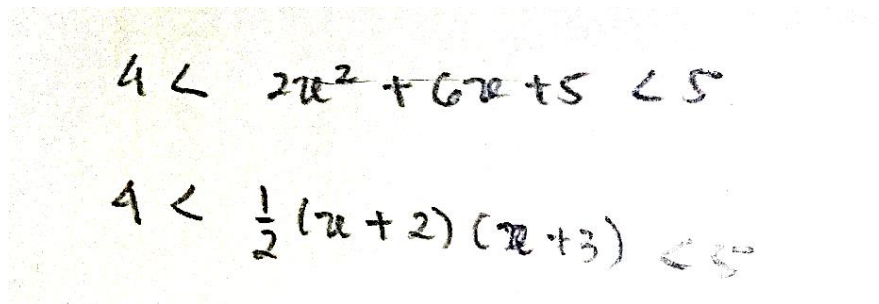 4 < 2x² + 6x + 5 < 5
4 < ½ (x + 2) (x + 3) < 5